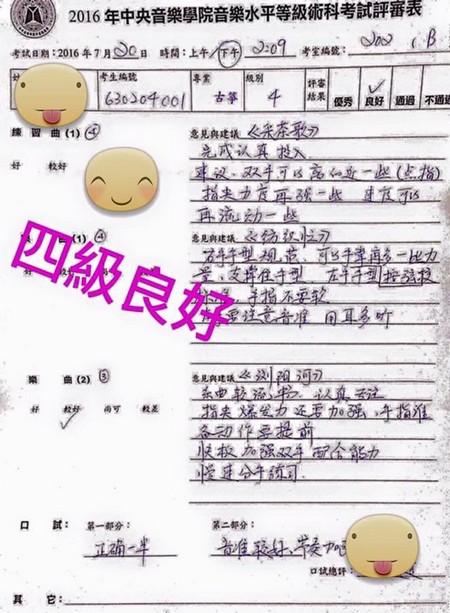 2016 年中央音樂學院音樂水平等級術科考試評審表
考試日期：2016 年 7 月 20 日 時間：上午/下午 2:09 考室編號： 202
考生編號 專業 級別 評審結果 優秀 良好 通過 不通過
630204001 古箏 4
練習曲 (1) ④ 意見與建議 《采茶歌》
好 較好 完成认真投入
建议，双手可以离的近一些(点指)
指尖力度再强一些 速度可以
再流动一些
(1) ④ 意見與建議 《纺织忙》
右手手型规范，可以手掌再多一些力
量，支撑住手型 左手手型
手指不要软
要注意音准 用耳多听
四級良好
樂 曲 (2) ③ 意見與建議 《浏阳河》
好 較好 尚可 較差 乐曲较流畅 认真
指尖爆发力还要加强，手指准
备动作要提前
快板加强双手配合能力
慢速分手练习.
口 試： 第一部分： 第二部分：
正确一半 音准较好，节奏
口試總評：
其 它：